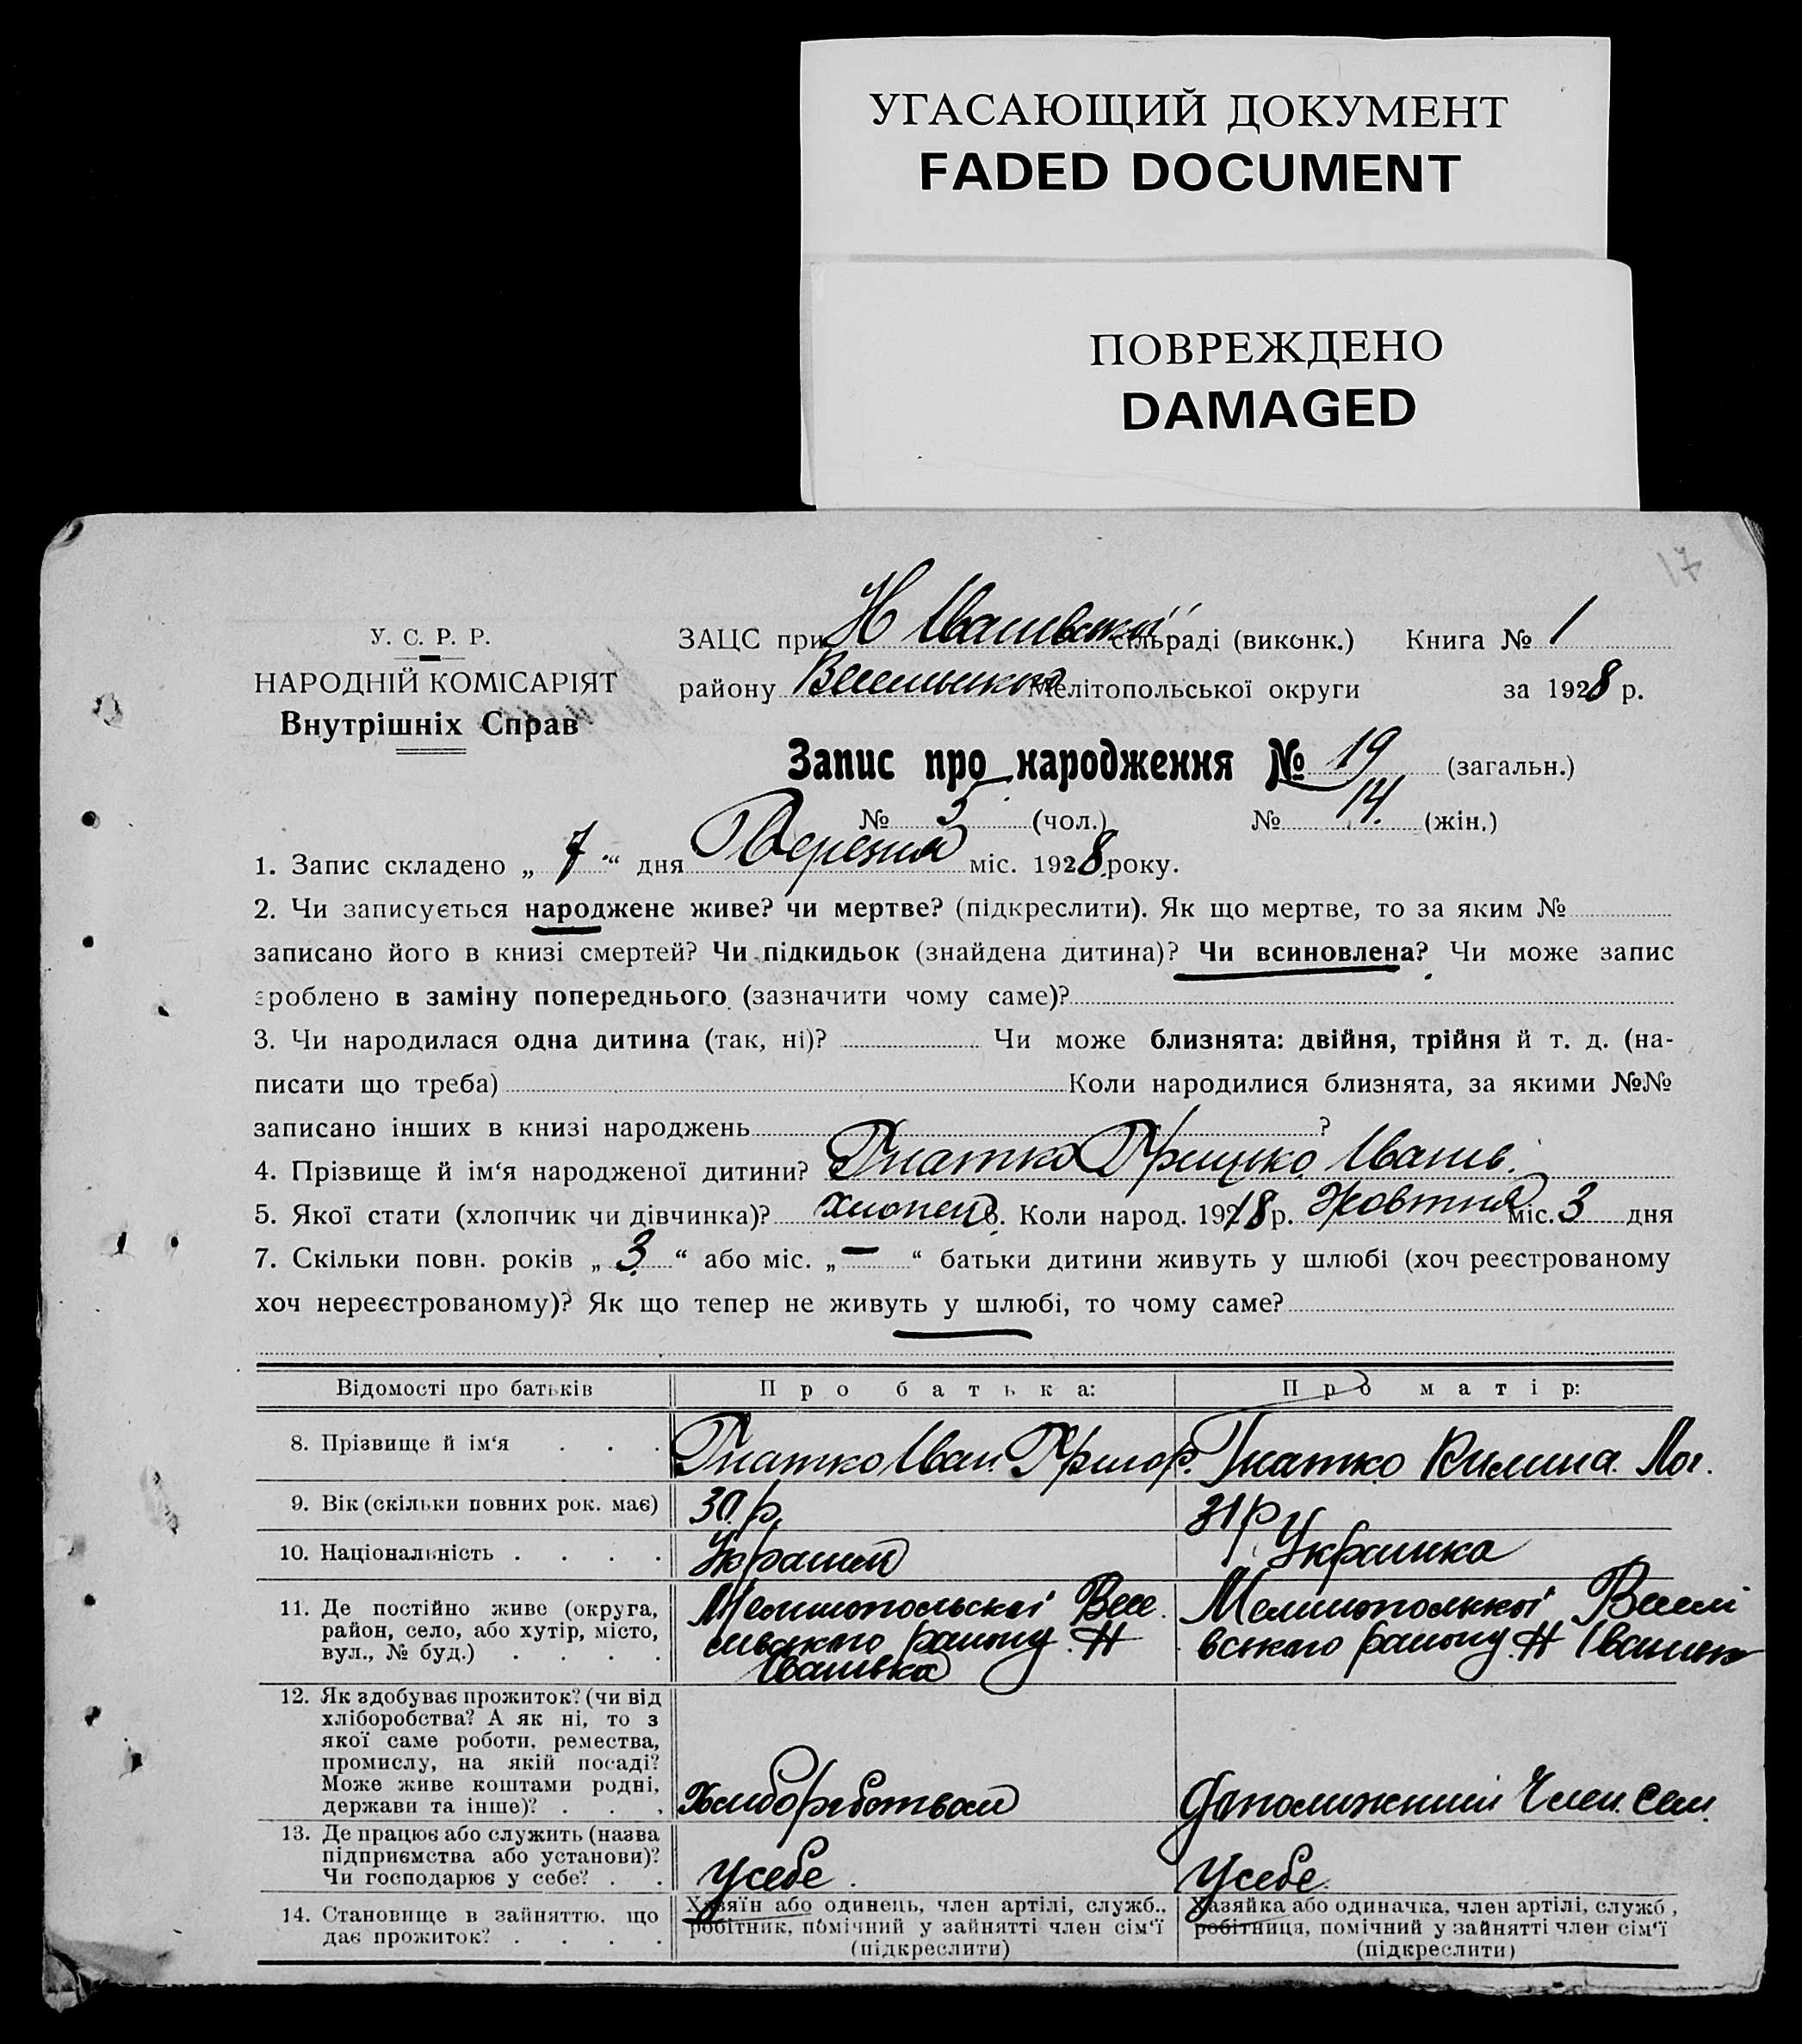 УГАСАЮЩИЙ ДОКУМЕНТ
FADED DOCUMENT
ПОВРЕЖДЕНО
DAMAGED
17
У. С. Р. Р.
НАРОДНІЙ КОМІСАРІЯТ
Внутрішніх Справ
ЗАЦС при Н Іванівській сільраді (виконк.) Книга № 1
району Мелітопольської округи за 1928 р.
Запис про народження № 19 (загальн.)
№ 5 (чол.) № 14. (жін.)
1. Запис складено „ 7 “ дня Березня міс. 1928 року.
2. Чи записується народжене живе? чи мертве? (підкреслити). Як що мертве, то за яким №
записано його в книзі смертей? Чи підкидьок (знайдена дитина)? Чи всиновлена? Чи може запис
зроблено в заміну попереднього (зазначити чому саме)?
3. Чи народилася одна дитина (так, ні)? Чи може близнята: двійня, трійня й т. д. (на-
писати що треба) Коли народилися близнята, за якими №№
записано інших в книзі народжень ?
4. Прізвище й ім‘я народженої дитини? Гнатко Грицько Іванів.
5. Якої стати (хлопчик чи дівчинка)? хлопець 6. Коли народ. 1918 р. Жовтня міс. 3 дня
7. Скільки повн. років „ 3 “ або міс. „ — “ батьки дитини живуть у шлюбі (хоч реєстрованому
хоч нереєстрованому)? Як що тепер не живуть у шлюбі, то чому саме?
Відомості про батьків Про батька: Про матір:
8. Прізвище й ім‘я . . . Гнатко Іван Григор. Гнатко Килина
9. Вік (скільки повних рок. має) 30 р. 31 р
10. Національність . . . . Українка
11. Де постійно живе (округа,
район, село, або хутір, місто,
вул., № буд.) . . . .
Мелитопольскоі Весе
лівського району Н
Іванівка
Мелитополькоі Веселі
вського району Н Іванівк
12. Як здобуває прожиток? (чи від
хліборобства? А як ні, то з
якої саме роботи, ремества,
промислу, на якій посаді?
Може живе коштами родні,
держави та інше)? . . .
Хлиборобством
Допомижний Член. сем.
13. Де працює або служить (назва
підприємства або установи)?
Чи господарює у себе? . .
У себе.
У себе.
14. Становище в зайняттю, що
дає прожиток? . . . .
Хазяїн або одинець, член артілі, служб.,
робітник, помічний у зайнятті член сім‘ї
(підкреслити)
Хазяйка або одиначка, член артілі, служб.,
робітниця, помічний у зайнятті член сім‘ї
(підкреслити)